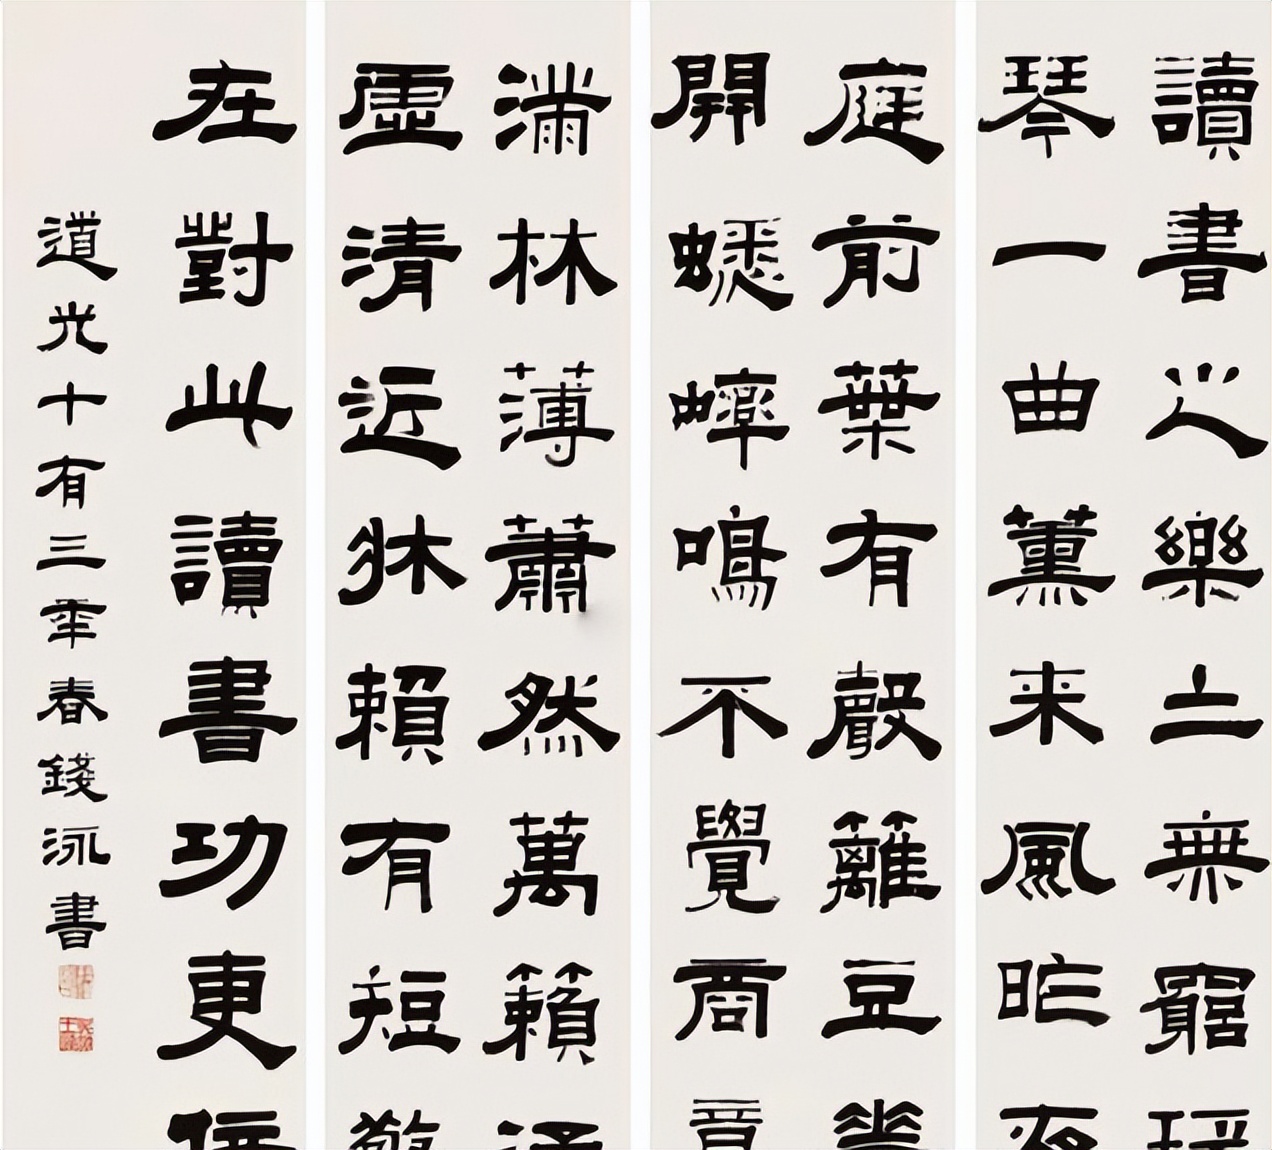 讀書之樂二無窮瑤
琴一曲薰来風昨夜
庭前葉有聲籬豆花
開蟋蟀鳴不覺商意
滿林薄蕭然萬籟涵
虛清近牀賴有短檠
在對此讀書功更倍
道光十有三年春錢泳書